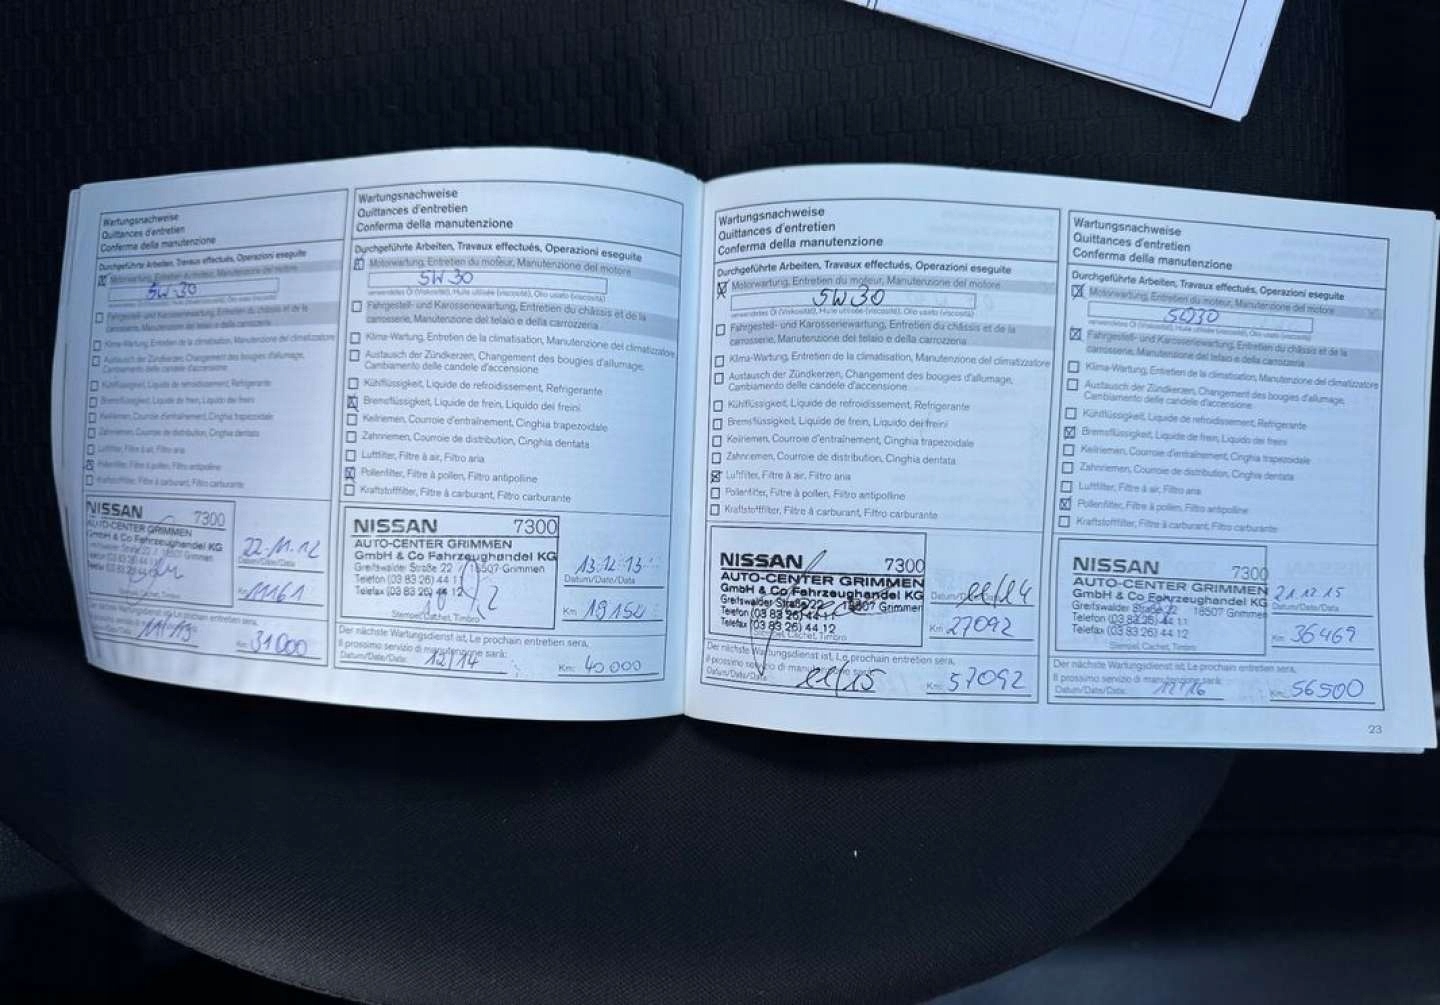 Wartungsnachweise
Quittances d'entretien
Conferma della manutenzione
Durchgeführte Arbeiten, Travaux effectués, Operazioni eseguite
Motorwartung, Entretien du moteur, Manutenzione del motore
5W-30
verwendetes Öl (Viskosität), Huile utilisée (viscosité), Olio usato (viscosità)
Fahrgestell- und Karosseriewartung, Entretien du châssis et de la
carrosserie, Manutenzione del telaio e della carrozzeria
Klima-Wartung, Entretien de la climatisation, Manutenzione del climatizzatore
Austausch der Zündkerzen, Changement des bougies d'allumage,
Cambiamento delle candele d'accensione
Kühlflüssigkeit, Liquide de refroidissement, Refrigerante
Bremsflüssigkeit, Liquide de frein, Liquido dei freini
Keilriemen, Courroie d'entraînement, Cinghia trapezoidale
Zahnriemen, Courroie de distribution, Cinghia dentata
Luftfilter, Filtre à air, Filtro aria
Pollenfilter, Filtre à pollen, Filtro antipolline
Kraftstofffilter, Filtre à carburant, Filtro carburante
NISSAN 7300
AUTO-CENTER GRIMMEN
GmbH & Co Fahrzeughandel KG
Greifswalder Straße 22 18507 Grimmen
22.11.12
Datum/Date/Data
Km 11161
Stempel, Cachet, Timbro
Der nächste Wartungsdienst ist, Le prochain entretien sera,
Il prossimo servizio di manutenzione sarà:
Datum/Date/Data: 11/13 Km: 31000
Wartungsnachweise
Quittances d'entretien
Conferma della manutenzione
Durchgeführte Arbeiten, Travaux effectués, Operazioni eseguite
Motorwartung, Entretien du moteur, Manutenzione del motore
5W30
verwendetes Öl (Viskosität), Huile utilisée (viscosité), Olio usato (viscosità)
Fahrgestell- und Karosseriewartung, Entretien du châssis et de la
carrosserie, Manutenzione del telaio e della carrozzeria
Klima-Wartung, Entretien de la climatisation, Manutenzione del climatizzatore
Austausch der Zündkerzen, Changement des bougies d'allumage,
Cambiamento delle candele d'accensione
Kühlflüssigkeit, Liquide de refroidissement, Refrigerante
Bremsflüssigkeit, Liquide de frein, Liquido dei freini
Keilriemen, Courroie d'entraînement, Cinghia trapezoidale
Zahnriemen, Courroie de distribution, Cinghia dentata
Luftfilter, Filtre à air, Filtro aria
Pollenfilter, Filtre à pollen, Filtro antipolline
Kraftstofffilter, Filtre à carburant, Filtro carburante
NISSAN 7300
AUTO-CENTER GRIMMEN
GmbH & Co Fahrzeughandel KG
Greifswalder Straße 22 18507 Grimmen
Telefon (03 83 26) 44 11
Telefax (03 83 26) 44 12
13.12.13
Datum/Date/Data
Km 19150
Stempel, Cachet, Timbro
Der nächste Wartungsdienst ist, Le prochain entretien sera,
Il prossimo servizio di manutenzione sarà:
Datum/Date/Data: 12/14 Km: 40000
Wartungsnachweise
Quittances d'entretien
Conferma della manutenzione
Durchgeführte Arbeiten, Travaux effectués, Operazioni eseguite
Motorwartung, Entretien du moteur, Manutenzione del motore
5W30
verwendetes Öl (Viskosität), Huile utilisée (viscosité), Olio usato (viscosità)
Fahrgestell- und Karosseriewartung, Entretien du châssis et de la
carrosserie, Manutenzione del telaio e della carrozzeria
Klima-Wartung, Entretien de la climatisation, Manutenzione del climatizzatore
Austausch der Zündkerzen, Changement des bougies d'allumage,
Cambiamento delle candele d'accensione
Kühlflüssigkeit, Liquide de refroidissement, Refrigerante
Bremsflüssigkeit, Liquide de frein, Liquido dei freini
Keilriemen, Courroie d'entraînement, Cinghia trapezoidale
Zahnriemen, Courroie de distribution, Cinghia dentata
Luftfilter, Filtre à air, Filtro aria
Pollenfilter, Filtre à pollen, Filtro antipolline
Kraftstofffilter, Filtre à carburant, Filtro carburante
NISSAN 7300
AUTO-CENTER GRIMMEN
GmbH & Co Fahrzeughandel KG
Greifswalder Straße 22 18507 Grimmen
Telefon (03 83 26) 44 11
Telefax (03 83 26) 44 12
11/14
Km 27092
Stempel, Cachet, Timbro
Der nächste Wartungsdienst ist, Le prochain entretien sera,
Il prossimo servizio di manutenzione sarà:
Datum/Date/Data: 11/15 Km: 57092
Wartungsnachweise
Quittances d'entretien
Conferma della manutenzione
Durchgeführte Arbeiten, Travaux effectués, Operazioni eseguite
Motorwartung, Entretien du moteur, Manutenzione del motore
5W30
verwendetes Öl (Viskosität), Huile utilisée (viscosité), Olio usato (viscosità)
Fahrgestell- und Karosseriewartung, Entretien du châssis et de la
carrosserie, Manutenzione del telaio e della carrozzeria
Klima-Wartung, Entretien de la climatisation, Manutenzione del climatizzatore
Austausch der Zündkerzen, Changement des bougies d'allumage,
Cambiamento delle candele d'accensione
Kühlflüssigkeit, Liquide de refroidissement, Refrigerante
Bremsflüssigkeit, Liquide de frein, Liquido dei freini
Keilriemen, Courroie d'entraînement, Cinghia trapezoidale
Zahnriemen, Courroie de distribution, Cinghia dentata
Luftfilter, Filtre à air, Filtro aria
Pollenfilter, Filtre à pollen, Filtro antipolline
Kraftstofffilter, Filtre à carburant, Filtro carburante
NISSAN 7300
AUTO-CENTER GRIMMEN
GmbH & Co Fahrzeughandel KG
Greifswalder Straße 22 18507 Grimmen
Telefon (03 83 26) 44 11
Telefax (03 83 26) 44 12
21.12.15
Datum/Date/Data
Km 36469
Stempel, Cachet, Timbro
Der nächste Wartungsdienst ist, Le prochain entretien sera,
Il prossimo servizio di manutenzione sarà:
Datum/Date/Data: 12/16 Km: 56500
23